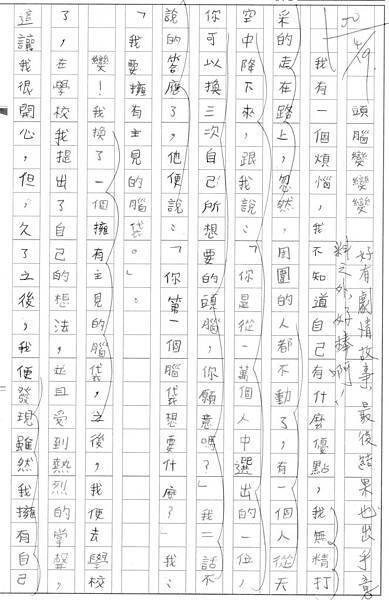 50
4/9.
頭腦變變變
好有劇情故事,最後結果也出乎意
料之外,好棒啊!
我有一個煩惱,我不知道自己有什麼優點,我無精打
采的走在路上,忽然,周圍的人都不動了,有一個人從天
空中降下來,跟我說:「你是從一萬個人中選出的一位,
你可以換三次自己所想要的頭腦,你願意嗎?」我二話不
說的答應了,他便說:「你第一個腦袋想要什麼?」我:
「我要擁有主見的腦袋。」。
變!我換了一個擁有主見的腦袋,之後,我便去學校
了,在學校我提出了自己的想法,並且受到熱烈的掌聲,
這讓我很開心,但,久了之後,我便發現雖然我擁有自己